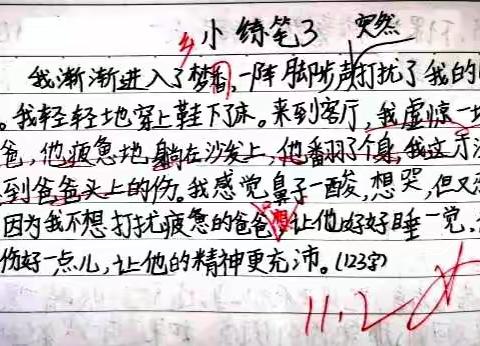 小练笔3 突然
我渐渐进入了梦香,一阵脚步声打扰了我的
。我轻轻地穿上鞋下了床。来到客厅,我虚惊一
爸,他疲惫地躺在沙发上,他翻了个身,我这才
到爸爸头上的伤。我感觉鼻子一酸,想哭,但又
因为我不想打扰疲惫的爸爸,想让他好好睡一觉,
伤好一点儿,让他的精神更充沛。(123字)
11.2